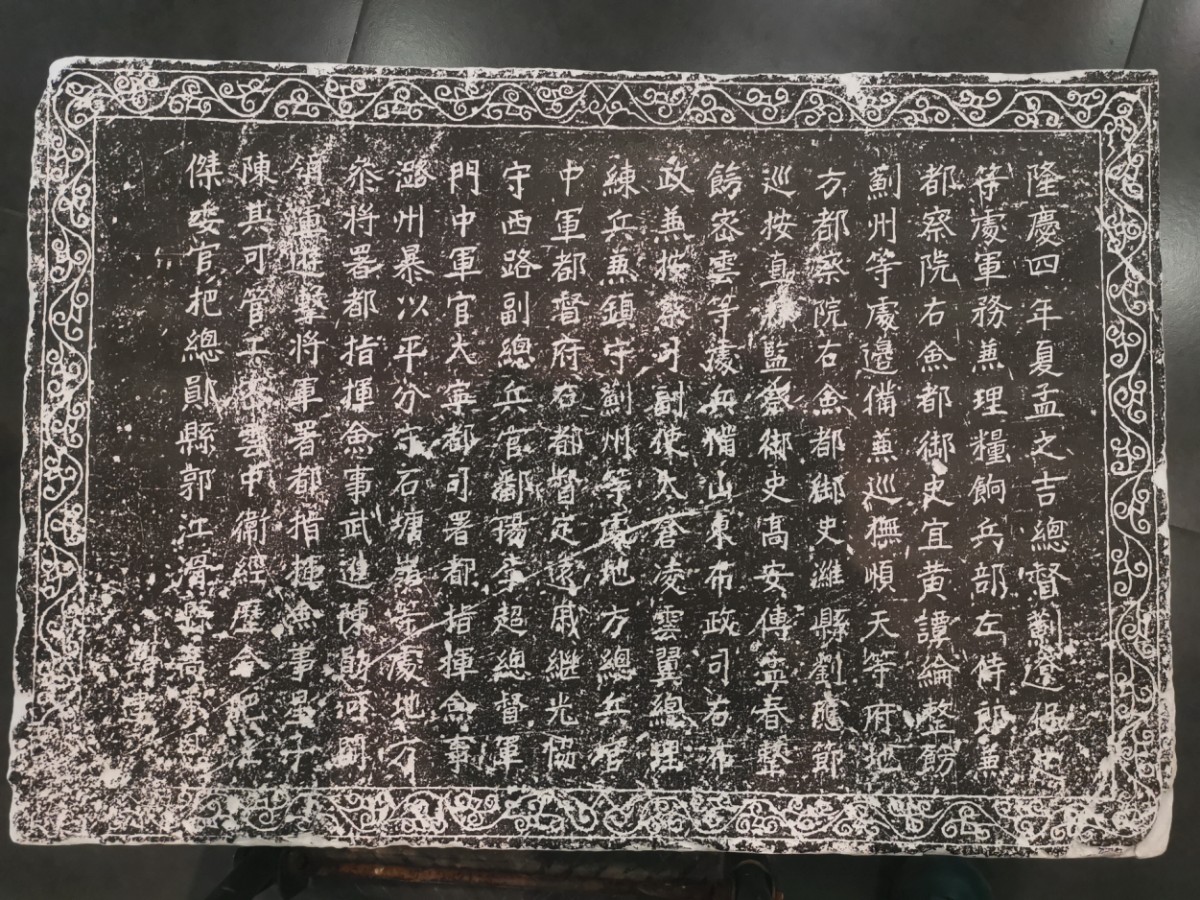 隆慶四年夏孟之吉總督薊遼保定
等處軍務蕪理糧餉兵部左侍郎蕪
都察院右僉都御史宜黄譚綸整飭
薊州等處邊備蕪巡撫順天等府地
方都察院右僉都御史濰縣劉應節
巡按直隸監察御史高安傅孟春整
飭密雲等處兵備山東布政司右布
政蕪按察司副使太倉凌雲翼總理
練兵蕪鎮守薊州等處地方總兵官
中軍都督府右都督定遠戚繼光協
守西路副總兵官鄱陽李超總督軍
門中軍官大寧都司署都指揮僉事
潞州暴以平分守石塘嶺等處地方
叅將署都指揮僉事武進陳勛河間
領軍遊擊將軍署都指揮僉事
陳其可管工密雲中衞經歷
傑委官把總鄖縣郭江滑縣